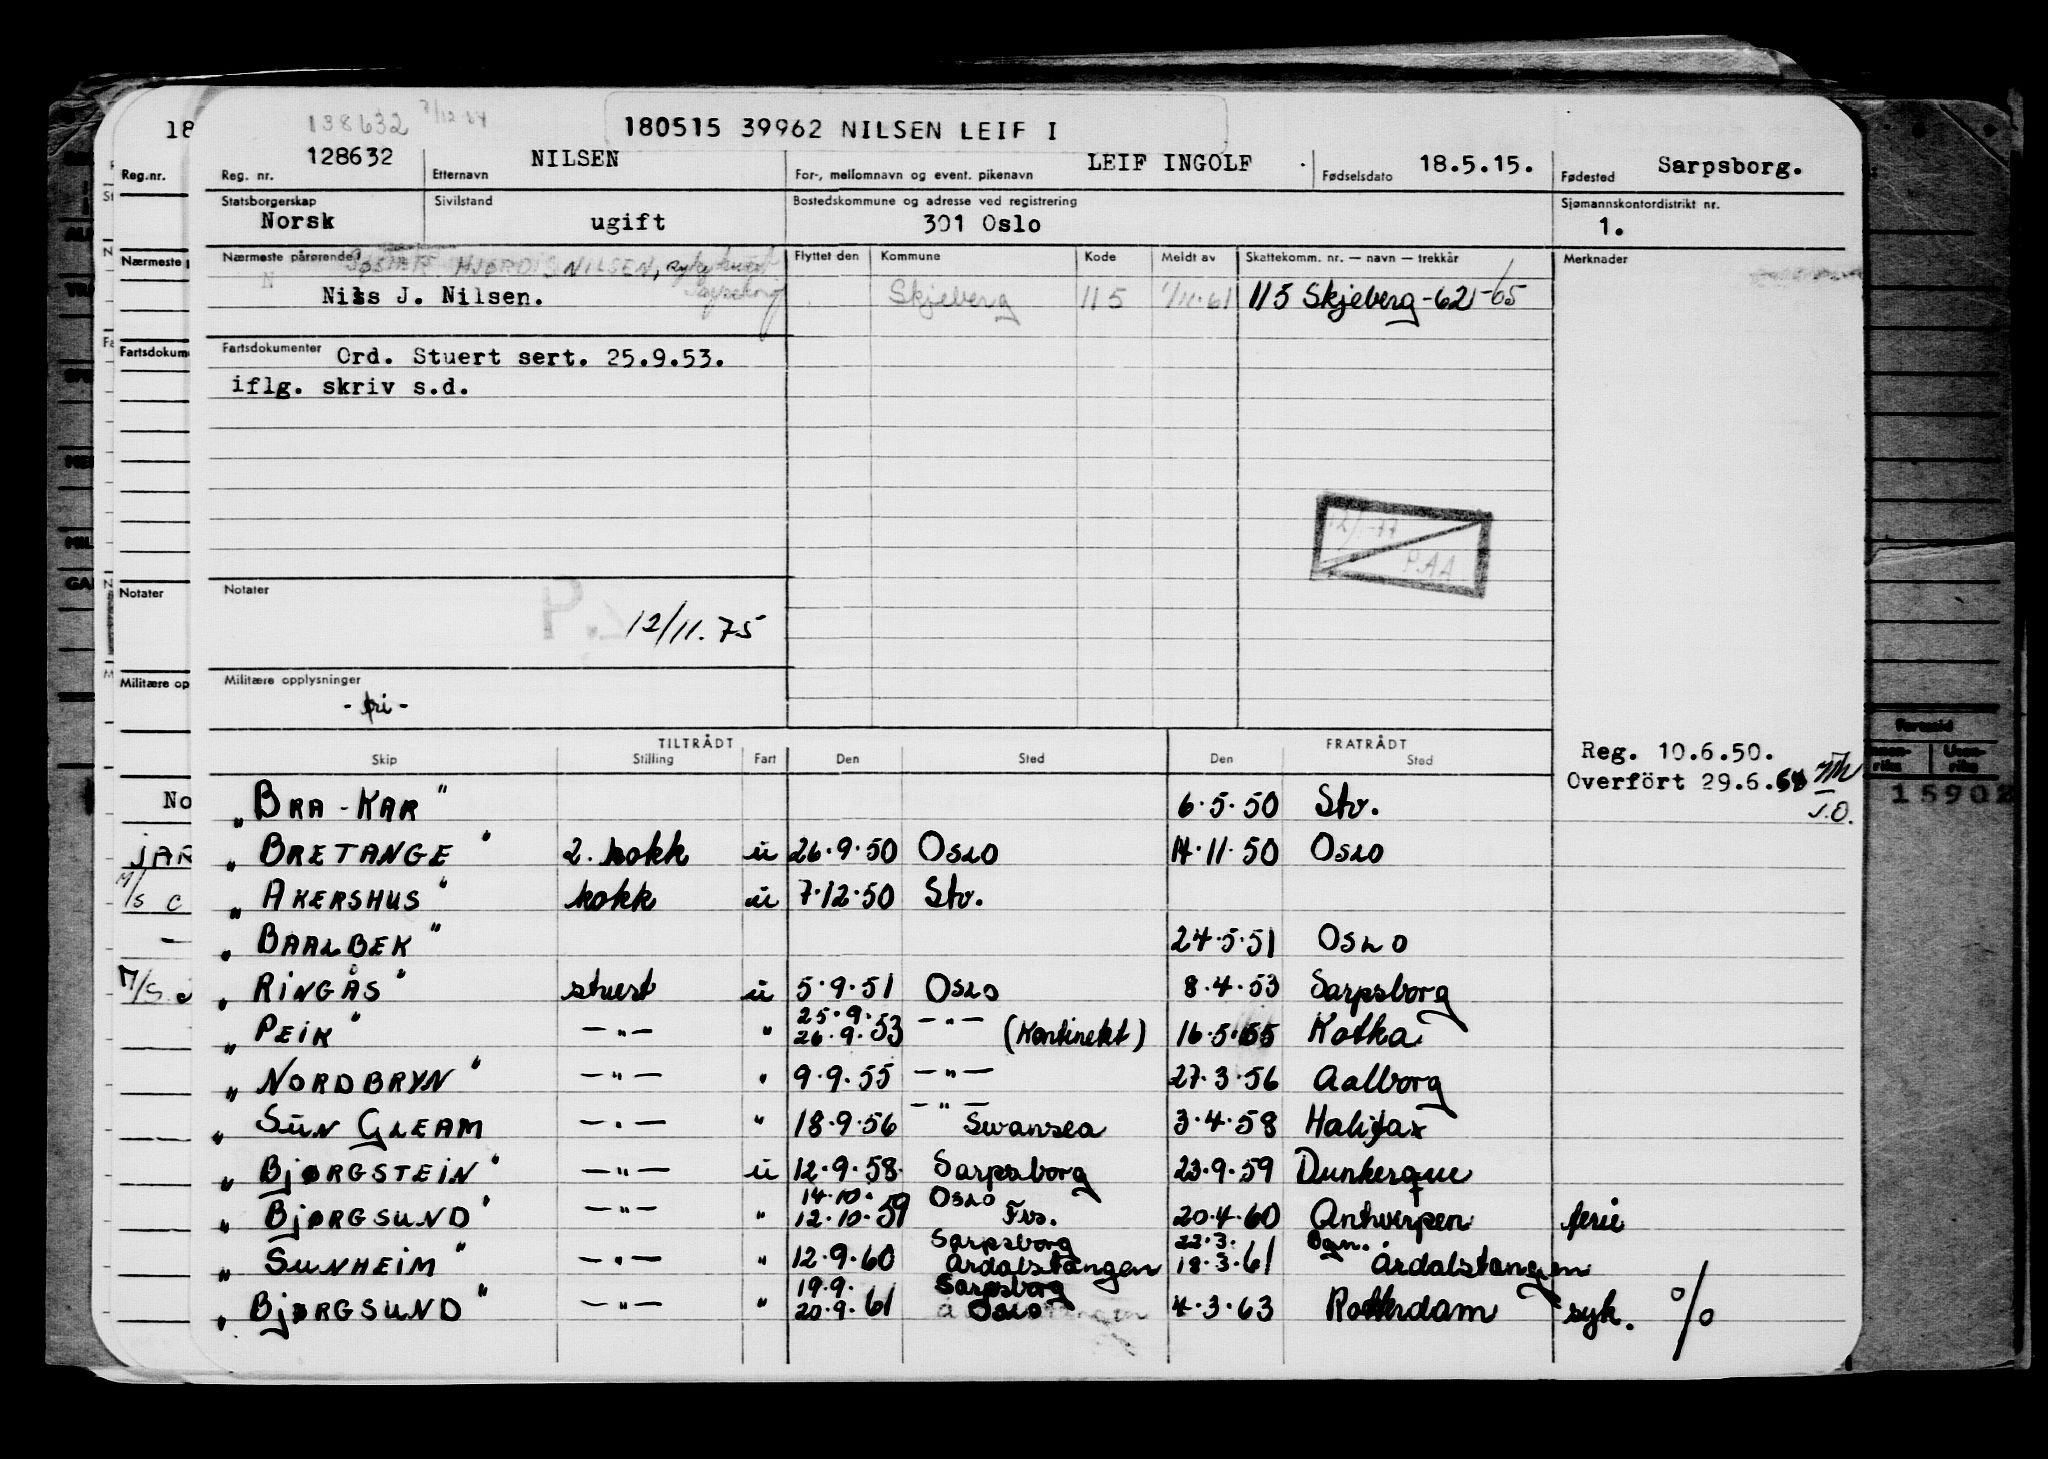 138632 7/12.64
180515 39962 NILSEN LEIF I
128632 NILSEN LEIF INGOLF 18.5.15. Sarpsborg.
Reg. nr. Etternavn For-, mellomnavn og event. pikenavn Fødselsdato Fødested
Statsborgerskap Sivilstand Bostedskommune og adresse ved registrering Sjømannskontordistrikt nr.
Norsk ugift 301 Oslo 1.
Nærmeste pårørende HJØRDIS NILSEN, Flyttet den Kommune Kode Meldt av Skattekomm. nr. — navn — trekkår Merknader
N Nils J. Nilsen. Skjeberg 115 1/11.61 115 Skjeberg-62-65
Fartsdokumenter Ord. Stuert sert. 25.9.53.
iflg. skriv s.d.
12/1-77
PAA
Notater
12/11.75
Militære opplysninger
- fri -
TILTRÅDT FRATRÅDT
Skip Stilling Fart Den Sted Den Sted
Reg. 10.6.50.
Overført 29.6.
J.O.
„BRA-KAR" 6.5.50 Stv.
„BRETANGE" 2. kokk u 26.9.50 OSLO 14.11.50 OSLO
„AKERSHUS" kokk u 7.12.50 Stv.
„BAALBEK" 24.5.51 OSLO
„RINGÅS" stuert u 5.9.51 OSLO 8.4.53 Sarpsborg
25.9.
„PEIK" —"— " 26.9.53 —"— 16.5.55 Kotka
„NORDBRYN" —"— " 9.9.55 —"— 27.3.56 Aalborg
—"—
„SUN GLEAM —"— " 18.9.56 Swansea 3.4.58 Halifax
„BJØRGSTEIN" —"— u 12.9.58. Sarpsborg 23.9.59 Dunkerque
14.10. OSLO
„BJØRGSUND" —"— " 12.10.59 20.4.60 Antwerpen ferie
Sarpsborg 22.3. Bgn.
„SUNHEIM" —"— " 12.9.60 Årdalstangen 18.3.61 Årdalstangen
19.9. Sarpsborg
„BJØRGSUND" —"— " 20.9.61 OSLO 4.3.63 Rotterdam syk. %
18
Reg.nr.
Nærmeste
Fartsdokume
Notater
Militære op
No
JAR
M/S C
M/S
Fartstid
15902